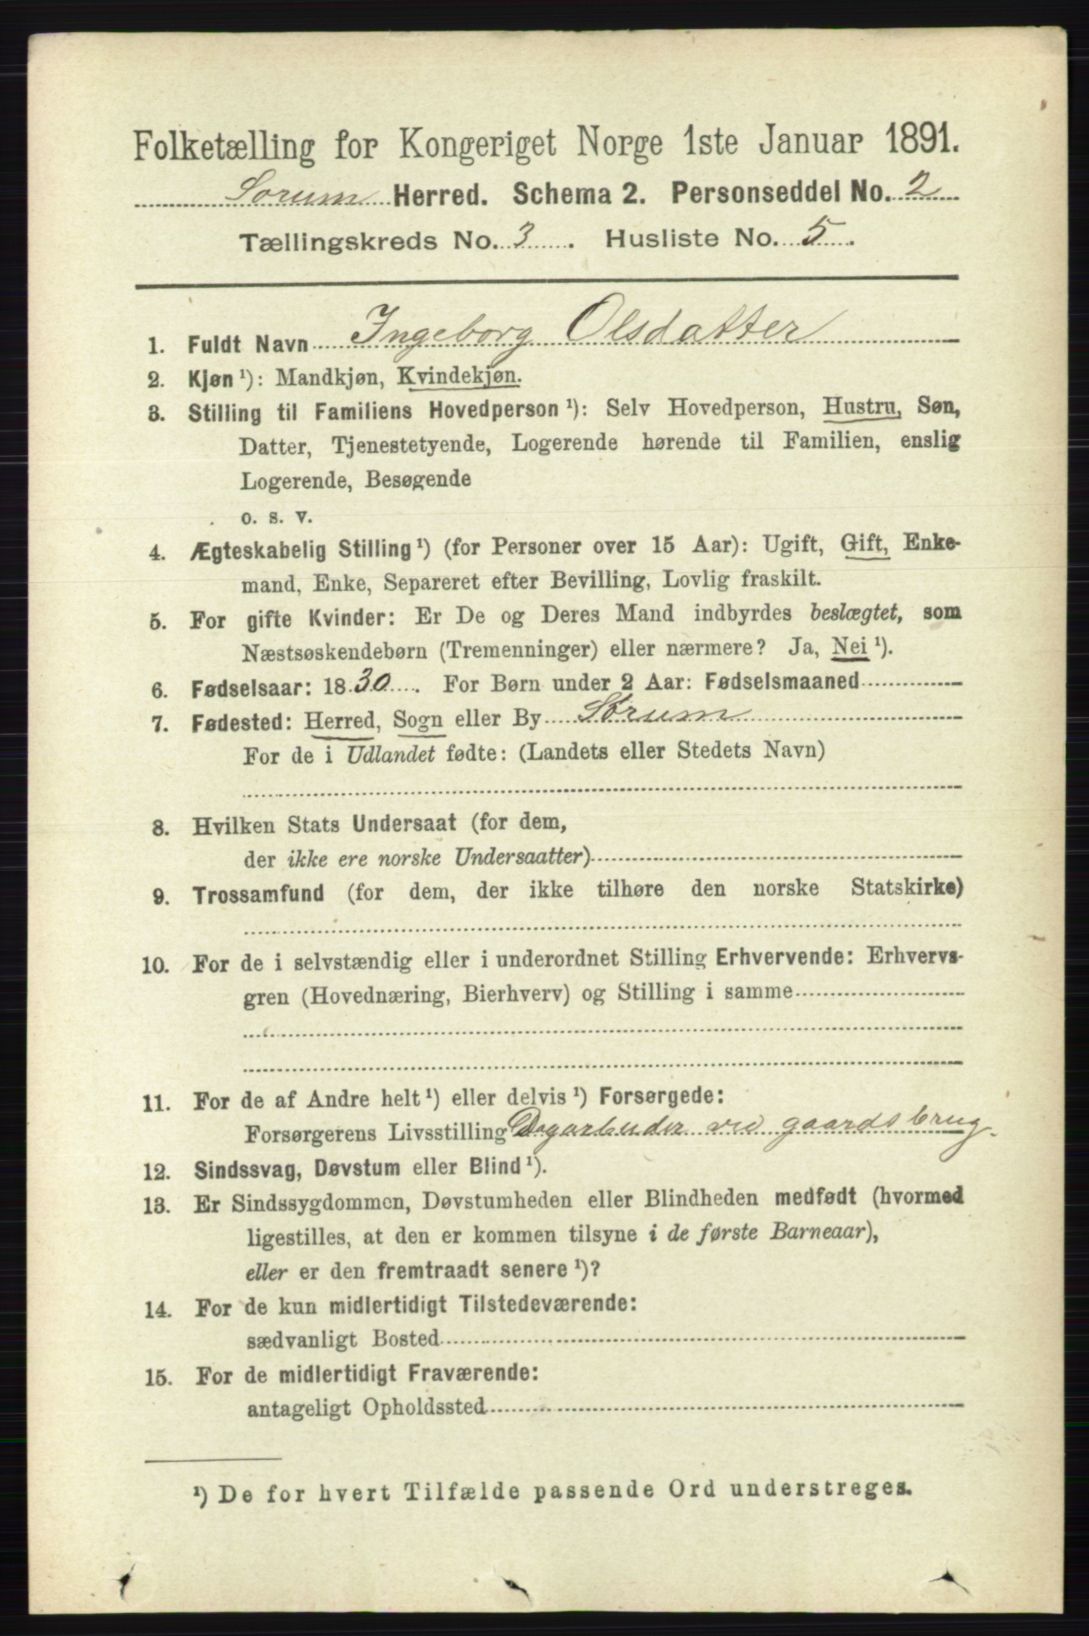 Folketælling for Kongeriget Norge 1ste Januar 1891.
Sørum Herred. Schema 2. Personseddel No. 2
Tællingskreds No. 3. Husliste No. 5.
1. Fuldt Navn Ingeborg Olsdatter
2. Kjøn ¹): Mandkjøn, Kvindekjøn.
3. Stilling til Familiens Hovedperson ¹): Selv Hovedperson, Hustru, Søn,
Datter, Tjenestetyende, Logerende hørende til Familien, enslig
Logerende, Besøgende
o. s. v.
4. Ægteskabelig Stilling ¹) (for Personer over 15 Aar): Ugift, Gift, Enke-
mand, Enke, Separeret efter Bevilling, Lovlig fraskilt.
5. For gifte Kvinder: Er De og Deres Mand indbyrdes beslægtet, som
Næstsøskendebørn (Tremenninger) eller nærmere? Ja, Nei ¹).
6. Fødselsaar: 1830. For Børn under 2 Aar: Fødselsmaaned
7. Fødested: Herred, Sogn eller By Sørum
For de i Udlandet fødte: (Landets eller Stedets Navn)
8. Hvilken Stats Undersaat (for dem,
der ikke ere norske Undersaatter)
9. Trossamfund (for dem, der ikke tilhøre den norske Statskirke)
10. For de i selvstændig eller i underordnet Stilling Erhvervende: Erhvervs-
gren (Hovednæring, Bierhverv) og Stilling i samme
11. For de af Andre helt ¹) eller delvis ¹) Forsørgede:
Forsørgerens Livsstilling Dagarbuder ved gaardsbrug.
12. Sindssvag, Døvstum eller Blind ¹).
13. Er Sindssygdommen, Døvstumheden eller Blindheden medfødt (hvormed
ligestilles, at den er kommen tilsyne i de første Barneaar),
eller er den fremtraadt senere ¹)?
14. For de kun midlertidigt Tilstedeværende:
sædvanligt Bosted
15. For de midlertidigt Fraværende:
antageligt Opholdssted
¹) De for hvert Tilfælde passende Ord understreges.